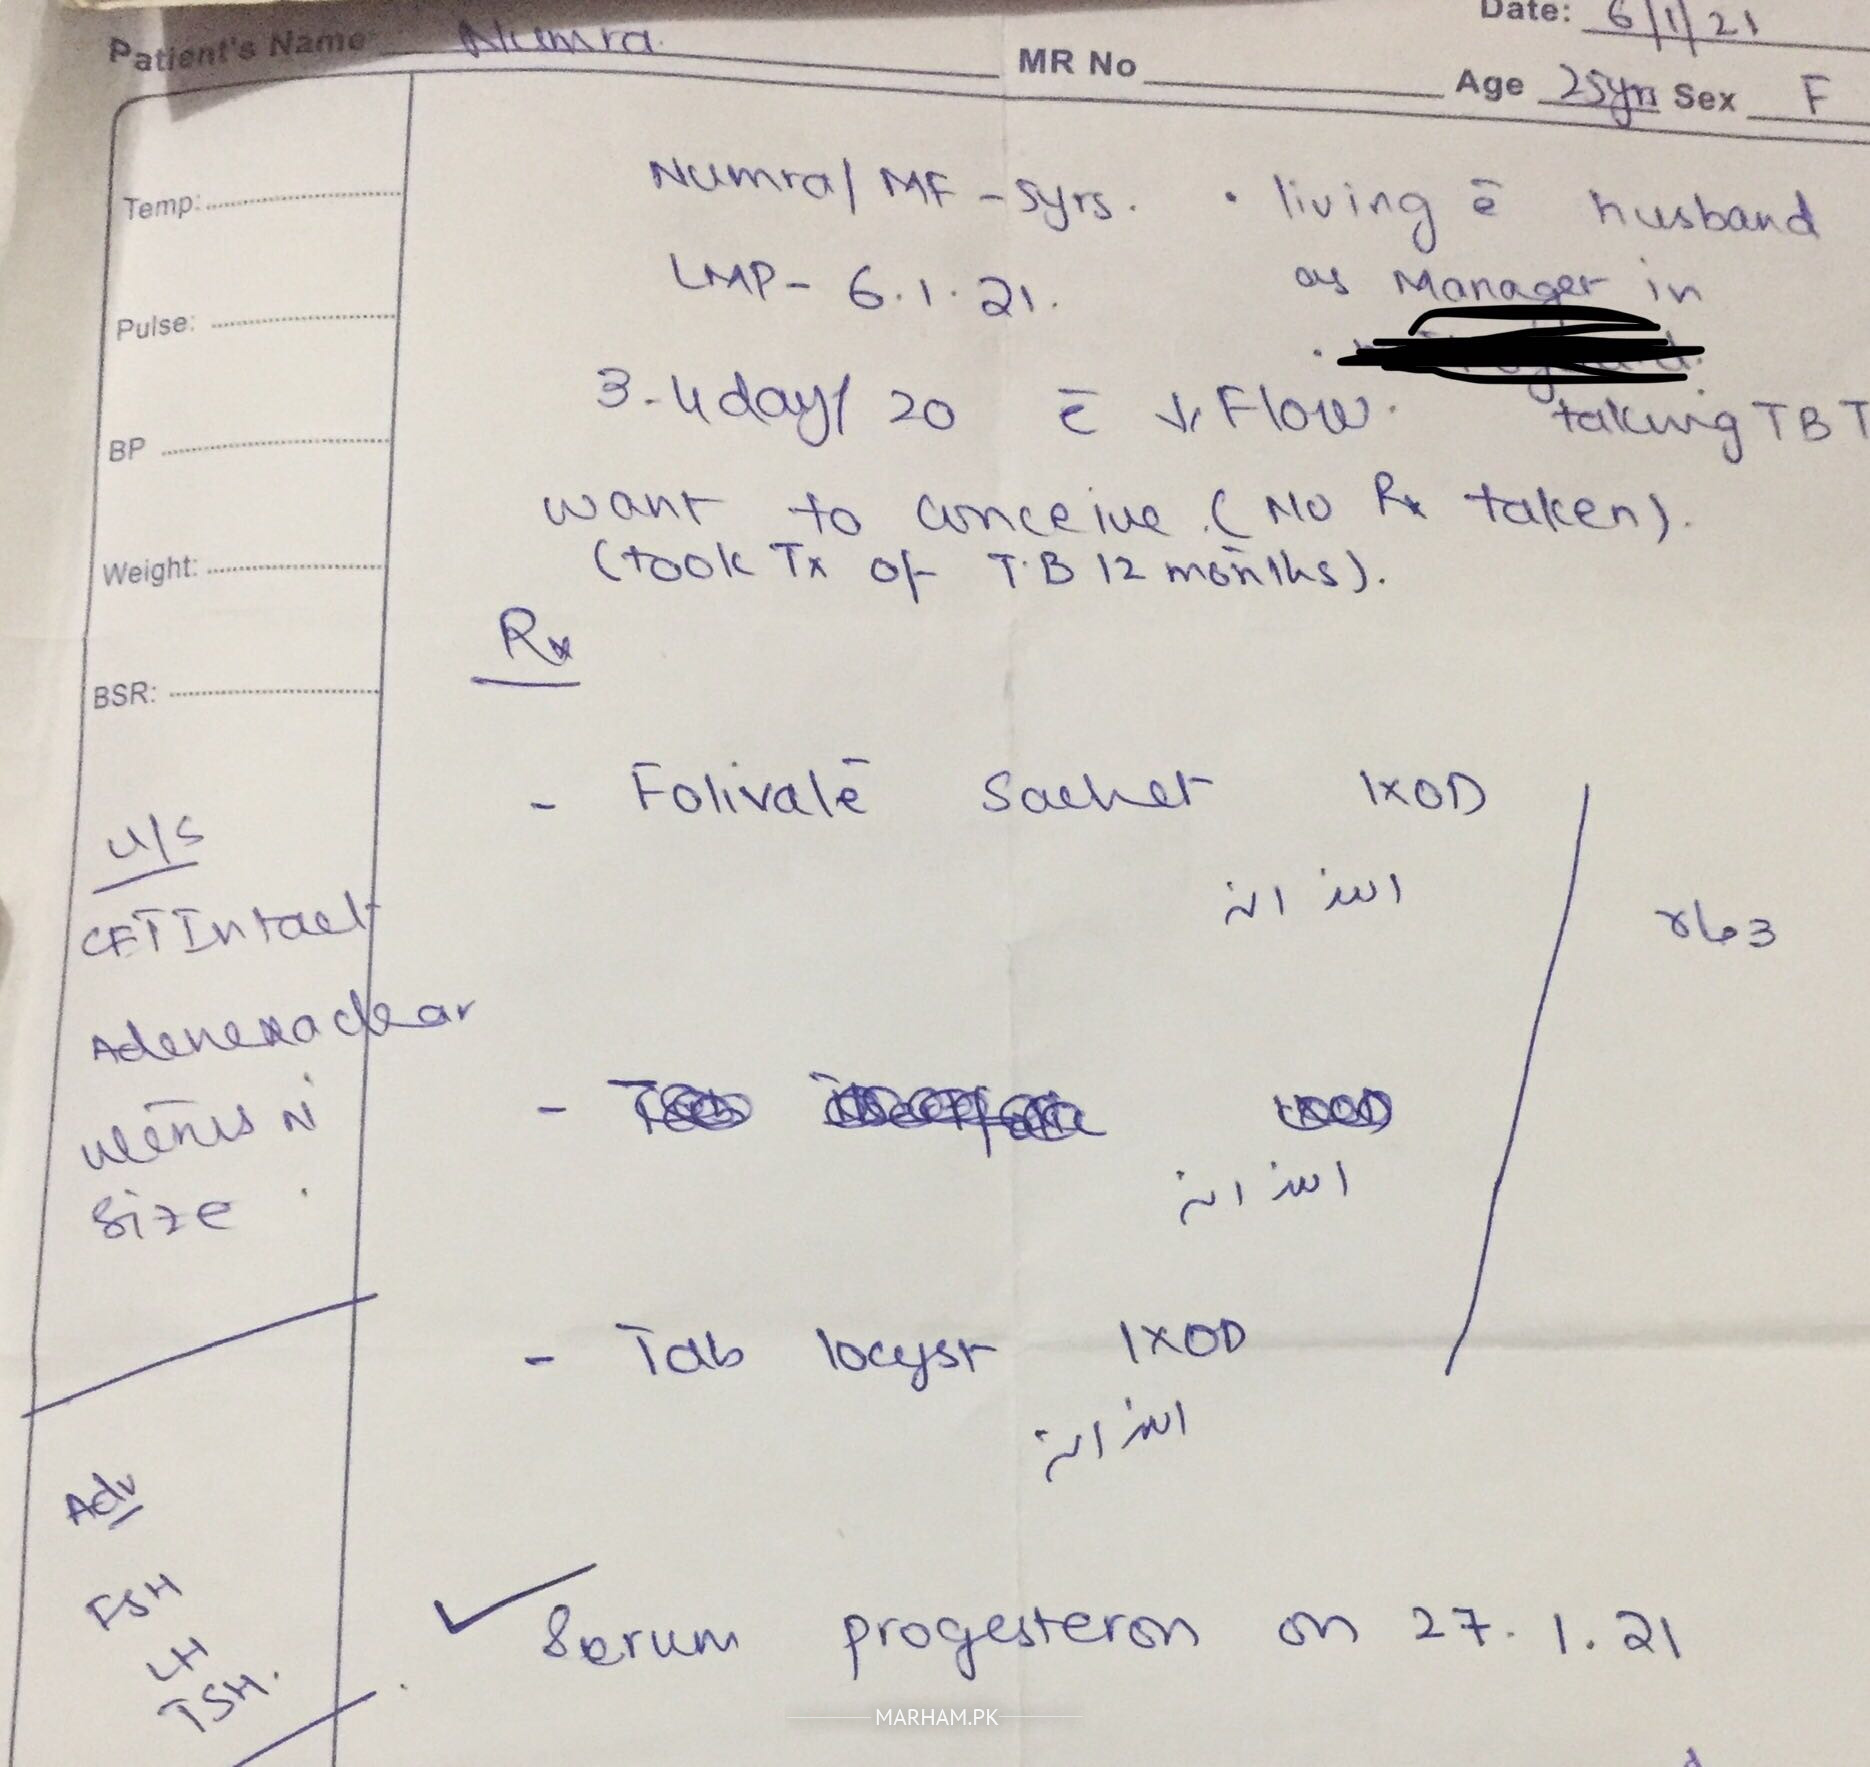 Date: 6/1/21
Patient's Name Numra MR No
Age 25yrs Sex F
Temp:
Pulse:
BP
Weight:
BSR:
Numra/ MF - 5yrs.
LMP - 6.1.21.
3-4day/ 20 c̄ ↓ Flow.
• living c̄ husband
as Manager in
taking TBT
want to conceive. (No Rx taken).
(took Tx of T.B 12 months).
Rx
- Folivate Sachet 1xOD
ایک روزانہ
3 ماہ
-
ایک روزانہ
- Tab locyst 1XOD
ایک روزانہ
✓ Serum progesteron on 27.1.21
U/S
CET Intact
Adenexa clear
uterus N
size.
Adv
FSH
LH
TSH.
MARHAM.PK